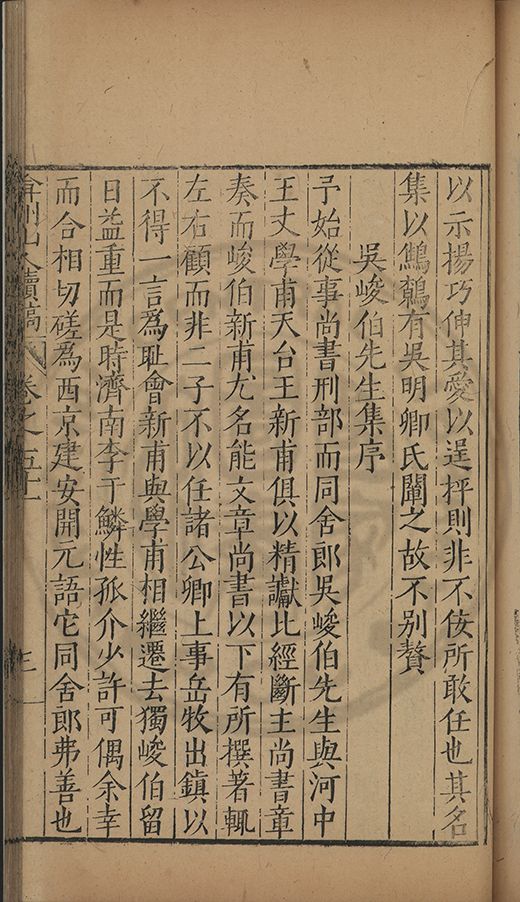 以示揚巧伸其愛以逞抨則非不佞所敢任也其名
集以鷦鷯有吳明卿氏闡之故不别贅
吳峻伯先生集序
予始從事尚書刑部而同舍郎吳峻伯先生與河中
王丈學甫天台王新甫俱以精讞比經斷主尚書章
奏而峻伯新甫尤名能文章尚書以下有所撰著輒
左右顧而非二子不以任諸公卿上事岳牧出鎮以
不得一言爲耻會新甫與學甫相繼遷去獨峻伯留
日益重而是時濟南李于鱗性孤介少許可偶余幸
而合相切磋爲西京建安開元語它同舍郎弗善也
弇州山人續稿 卷之五十一 三